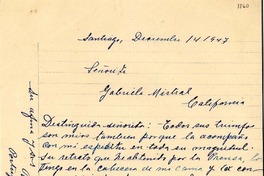 1860
Santiago, Diciembre 14/1947
Señorita
Gabriela Mistral
California
Distinguida señorita: Todos sus triunfos
son mios tambien porque la acompaño
con mi espiritu en toda su magnitud.
Su retrato que he obtenido por la Prensa, lo
tengo en la cabecera de mi cama y los con-